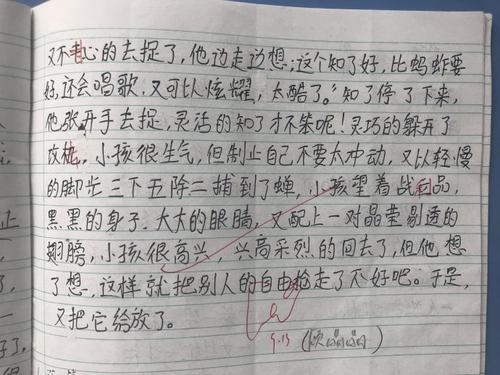 又不甘心的去捉了,他边走边想:这个知了好,比蚂蚱要
好,还会唱歌,又可以炫耀,太酷了。"知了停了下来,
他张开手去捉,灵活的知了才不笨呢!灵巧的躲开了
攻击,小孩很生气,但制止自己不要太冲动,又以轻慢
的脚步三下五除二捕到了蝉,小孩望着战利品,
黑黑的身子、大大的眼睛,又配上一对晶莹剔透的
翅膀,小孩很高兴,兴高采烈的回去了,但他想
了想,这样就把别人的自由抢走了不好吧。于是,
又把它给放了。
9.13